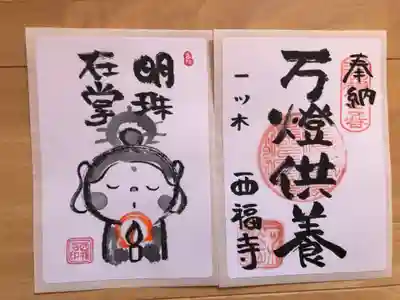 明珠
在掌
奉納
万燈供養
一ツ木
西福寺